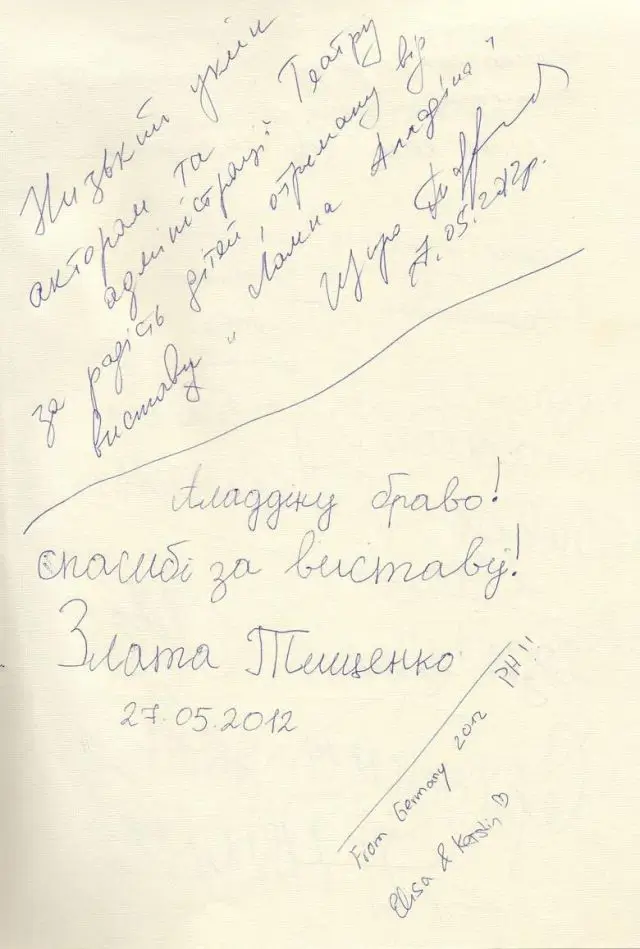 Низький уклін
акторам та Театру
адміністрації
за радість дітей, отриману від
виставу "Лампа Аладдіна"
Щиро
27.05.2012р.
Аладдіну браво!
спасибі за виставу!
Злата Тищенко
27.05.2012
From Germany 2012 PH!!
Elisa & Kerstin